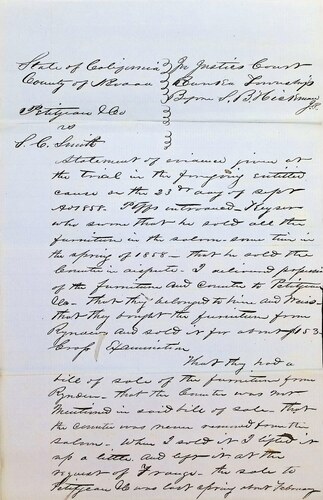 State of California } In Justices Court
County of } Township
Before S. B.
Petijean & Co J.P.
vs
S. C. Smith
Statement of evidence given at
the trial in the foregoing entitled
cause on the 23d day of Sept
AD 1858. Plffs introduced Keyser
who swore that he sold all the
furniture in the saloon some time in
the spring of 1858 - that he sold the
Counter in dispute. I delivered possession
of the furniture and Counter to Petijean
&Co - that they belonged to him and
that they bought the furniture from
Rynders and sold it for about $153
Cross Examination
That they had a
bill of sale of the furniture from
Rynders - that the Counter was not
Mentioned in said bill of sale - that
the counter was never removed from the
saloon - When I sold it I lifted it
up a little and left it at the
request of - the sale to
Petijean &Co was last spring about February